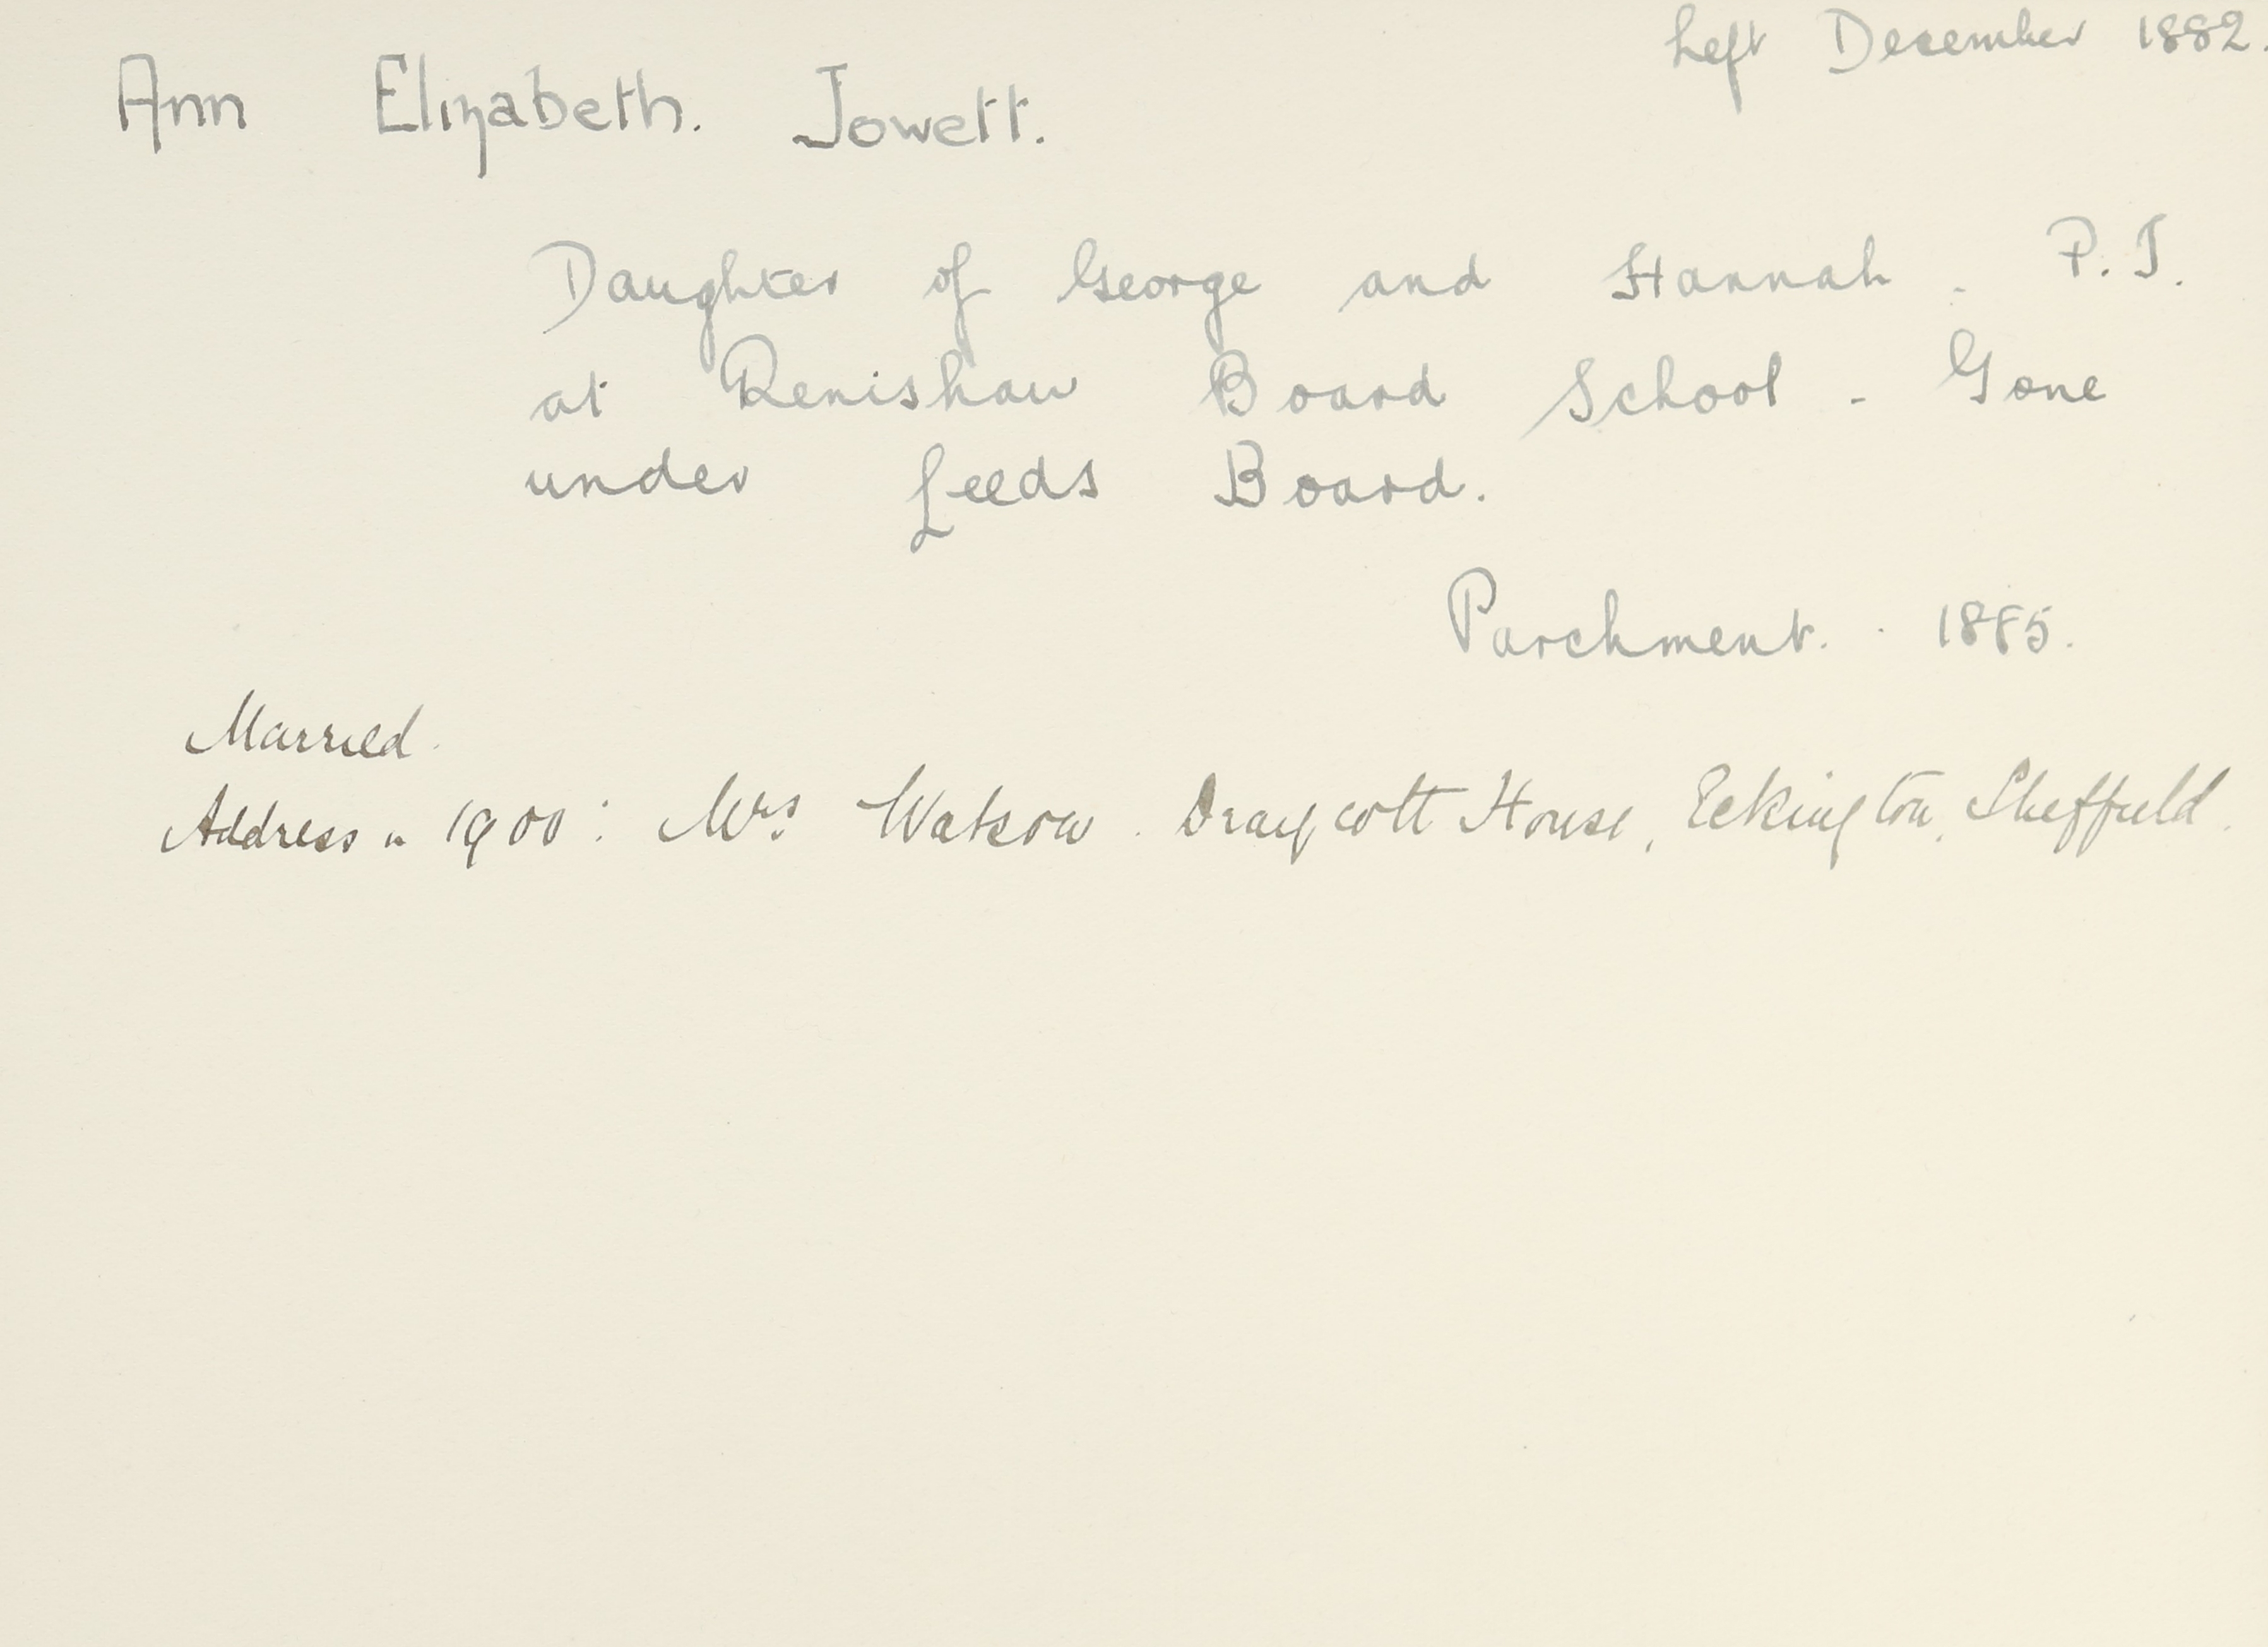 Left December 1882.
Ann Elizabeth. Jowett.
Daughter of George and Hannah - P.T.
at Renishaw Board School - Gone
under Leeds Board.
Parchment. . 1885.
Married.
Address in 1900: Mrs Watson. Draycott House, Eckington, Sheffield.